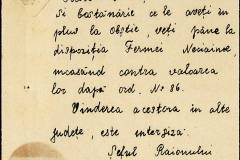 Si bostănărie ce le aveți în
plus la obștie, veți pune la
dispoziția Fermei
încasând contra valoarea
lor după ord. No 86.
Vinderea acestora în alte
județe, este interzisă.
Șeful Raionului